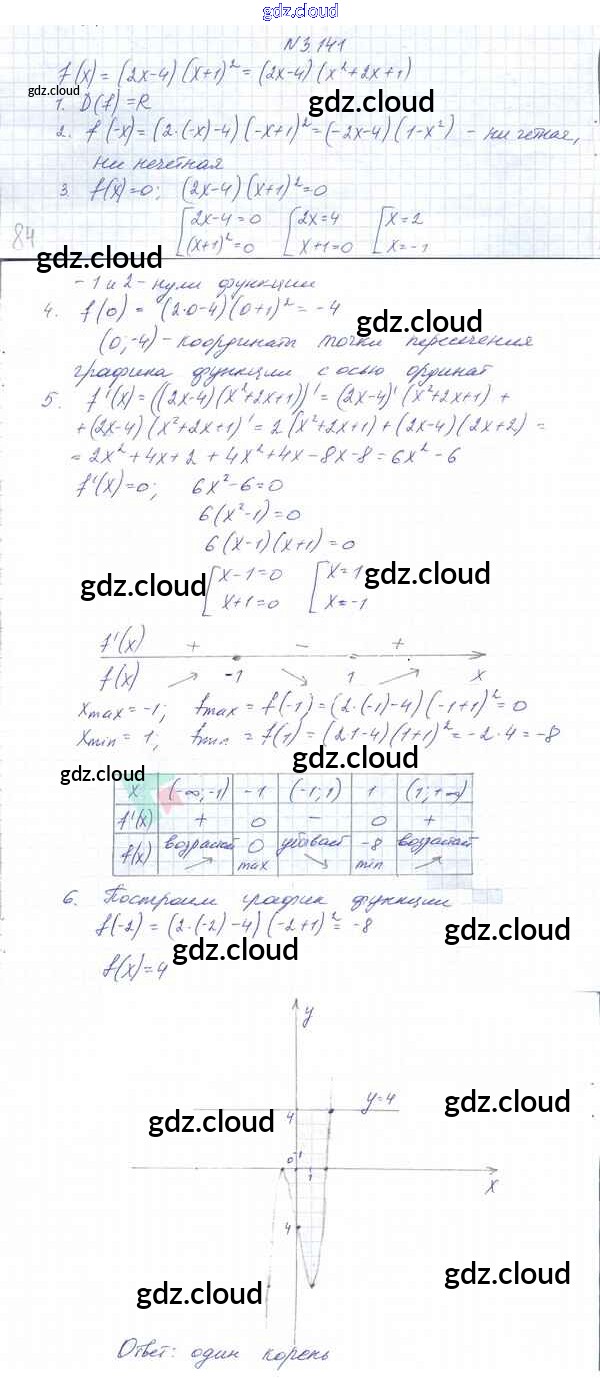 gdz.cloud
№3.141
f(x) = (2x-4)(x+1)² = (2x-4)(x²+2x+1)
gdz.cloud
gdz.cloud
1. D(f) = R
2. f(-x) = (2·(-x)-4)(-x+1)² = (-2x-4)(1-x²) - ни четная,
ни нечётная
3. f(x)=0; (2x-4)(x+1)²=0
[2x-4=0 [2x=4 [x=2
(x+1)²=0 x+1=0 x=-1
84
gdz.cloud
gdz.cloud
-1 и 2 - нули функции
4. f(0) = (2·0-4)(0+1)² = -4
gdz.cloud
(0;-4) - координата точки пересечения
графика функции с осью ординат
5. f'(x) = ((2x-4)(x²+2x+1))' = (2x-4)'(x²+2x+1) +
+(2x-4)(x²+2x+1)' = 2(x²+2x+1)+(2x-4)(2x+2) =
= 2x²+4x+2+4x²+4x-8x-8=6x²-6
f'(x)=0; 6x²-6=0
6(x²-1)=0
6(x-1)(x+1)=0
gdz.cloud
gdz.cloud
[x-1=0 [x=1
x+1=0 x=-1
f'(x) + - +
f(x) -1 1 x
xmax = -1; fmax = f(-1) = (2·(-1)-4)(-1+1)² = 0
xmin = 1; fmin = f(1) = (2·1-4)(1+1)² = -2·4 = -8
gdz.cloud
gdz.cloud
x (-∞;-1) -1 (-1;1) 1 (1;+∞)
f'(x) + 0 - 0 +
f(x) возрастает 0 max убывает -8 min возрастает
6. Построим график функции
f(-2) = (2·(-2)-4)(-2+1)² = -8
gdz.cloud
gdz.cloud
f(x)=4
y
y=4
4
gdz.cloud
gdz.cloud
0
-1
1
x
4
gdz.cloud
gdz.cloud
Ответ: один корень